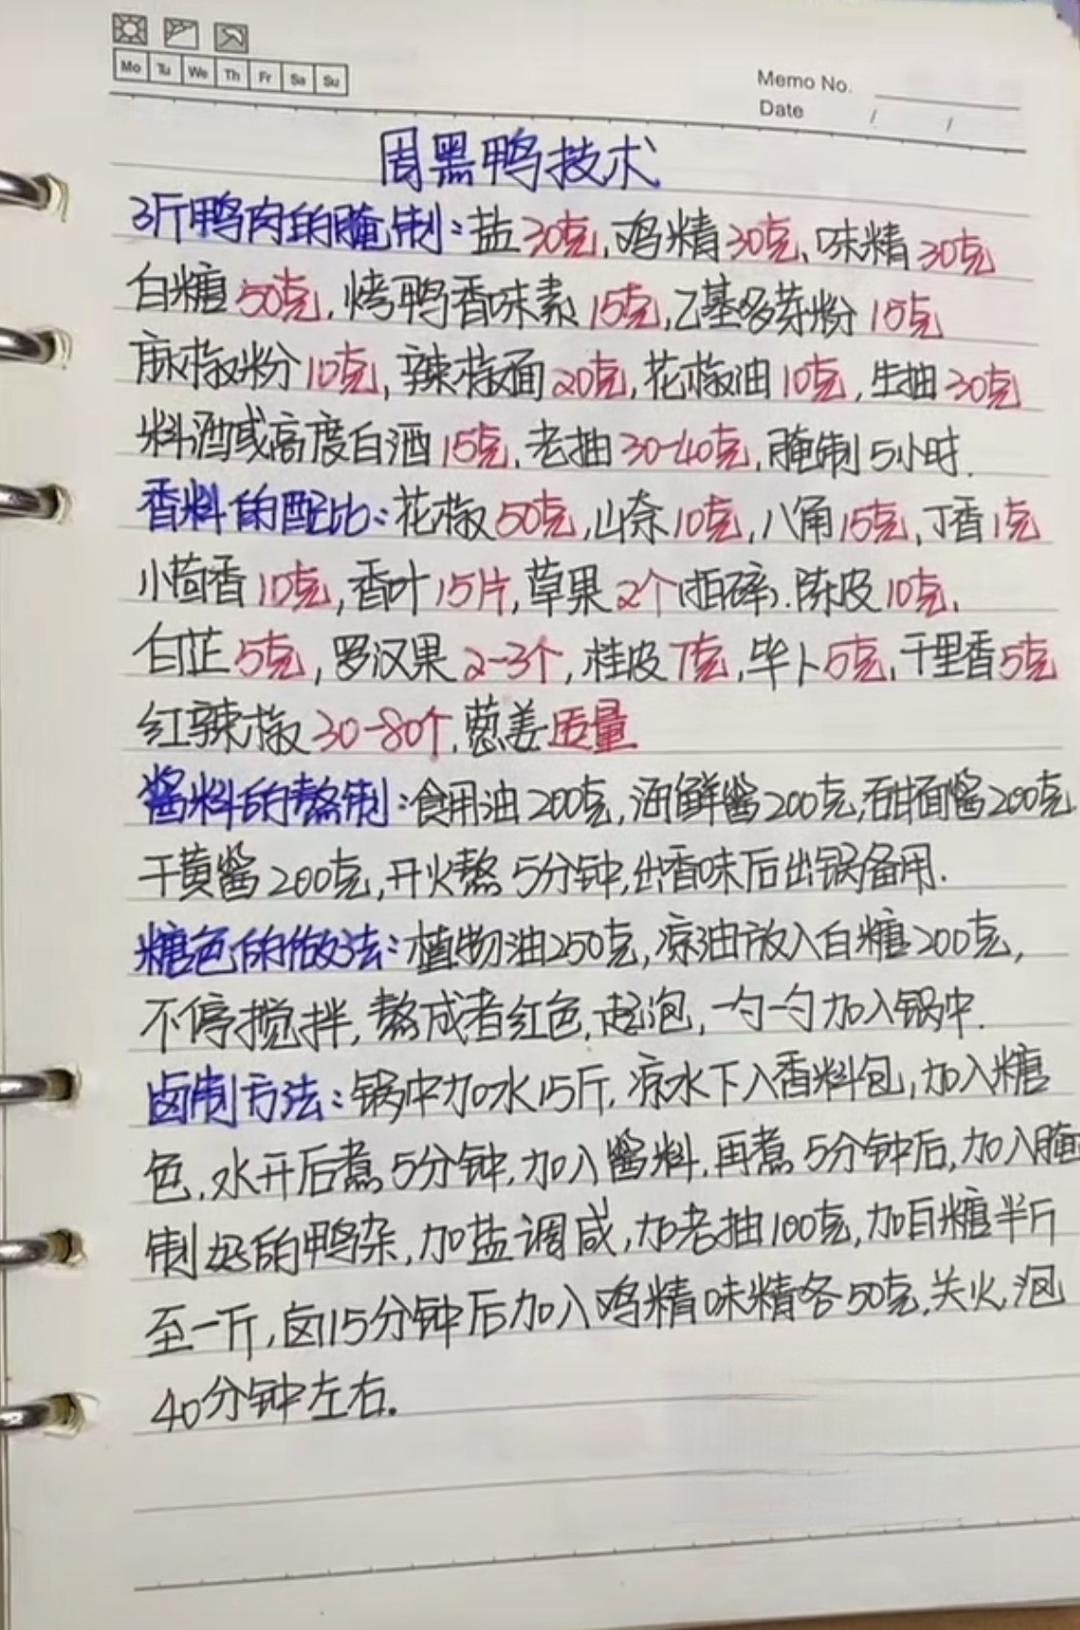 Mo Tu We Th Fr Sa Su
Memo No.
Date / /
周黑鸭技术
3斤鸭肉的腌制:盐30克,鸡精30克,味精30克
白糖50克,烤鸭香味素15克,乙基多芽粉15克
麻椒粉10克,辣椒面20克,花椒油10克,生抽30克
料酒或高度白酒15克,老抽30-40克,腌制5小时.
香料的配比:花椒50克,山奈10克,八角15克,丁香1克
小茴香10克,香叶15片,草果2个(拍碎).陈皮10克,
白芷5克,罗汉果2-3个,桂皮7克,毕卜5克,千里香5克
红辣椒30-80个,葱姜适量
酱料的熬制:食用油200克,海鲜酱200克,甜面酱200克
干黄酱200克,开火熬5分钟,出香味后出锅备用.
糖色的做法:植物油250克,凉油放入白糖200克,
不停搅拌,熬成者红色,起泡,一勺一勺加入锅中.
卤制方法:锅中加水15斤,凉水下入香料包,加入糖
色,水开后煮5分钟,加入酱料,再煮5分钟后,加入腌
制好的鸭杂,加盐调咸,加老抽100克,加白糖半斤
至一斤,卤15分钟后加入鸡精味精各50克,关火,泡
40分钟左右.